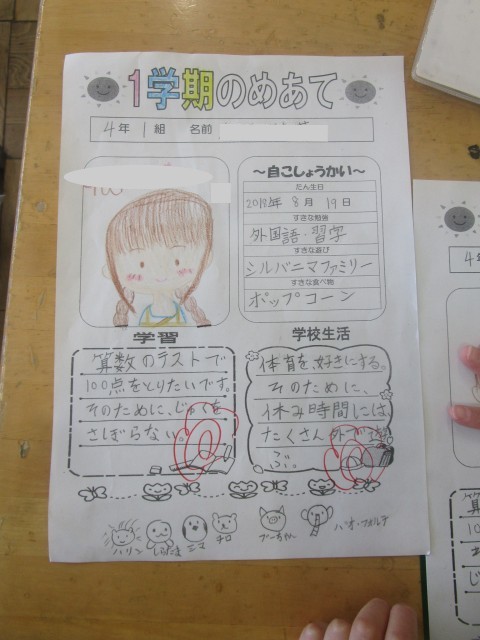 1学期のめあて
4年 1組 名前
〜自こしょうかい〜
たん生日
2012年 8月 19日
すきな勉強
外国語・習字
すきな遊び
シルバニアファミリー
すきな食べ物
ポップコーン
学習
算数のテストで
100点をとりたいです。
そのために、じゅくを
さぼらない。
学校生活
体育を、好きにする。
そのために、
休み時間には
たくさん外で遊
ぶ。
ハリン
しらたま
ミマ
チロ
プーちゃん